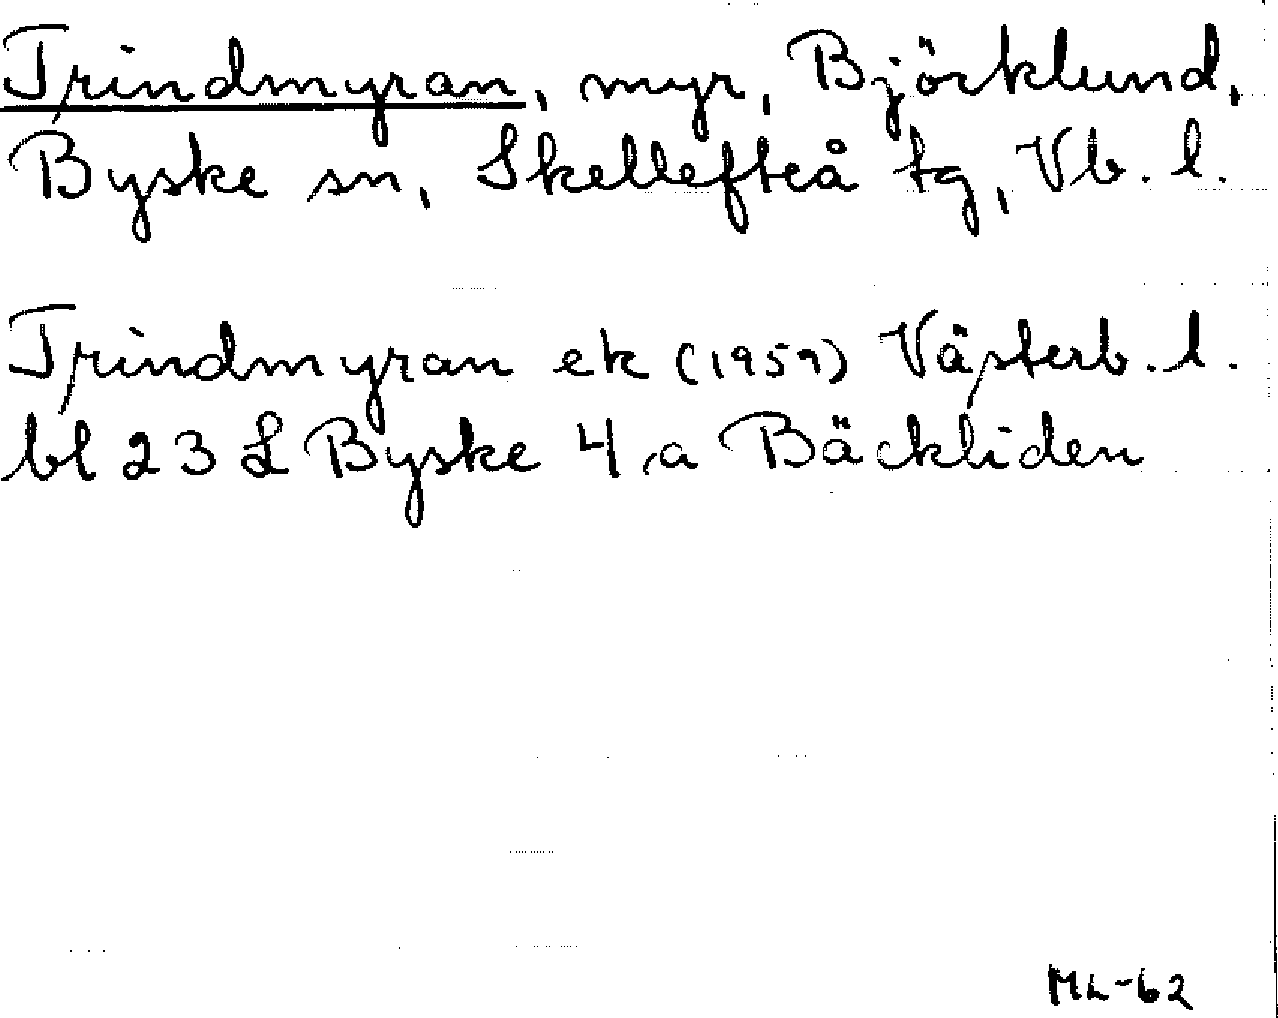 Trindmyran, myr, Björklund,
Byske sn, Skellefteå tg, Vb. l.
Trindmyran ek (1959) Västerb. l.
bl 23 L Byske 4 a Bäckliden
ML-62